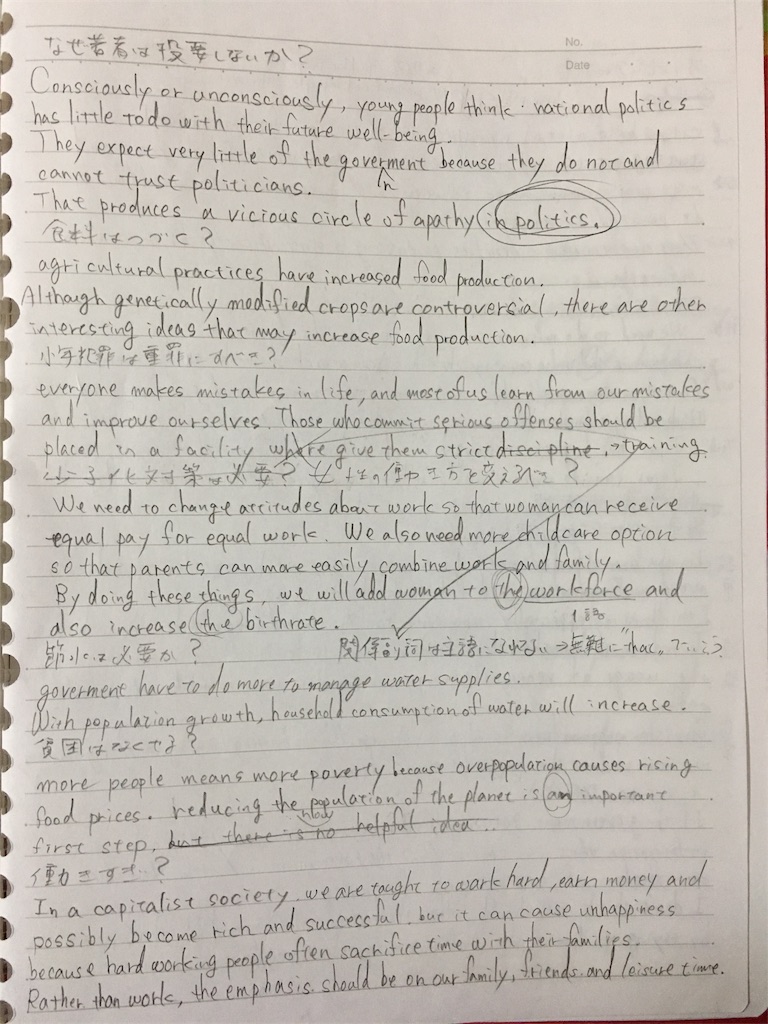 なぜ若者は投票しないか?
No.
Date
Consciously or unconsciously, young people think national politics
has little to do with their future well-being.
They expect very little of the goverment because they do not and
n
cannot trust politicians.
That produces a vicious circle of apathy in politics.
食料はつづく?
agricultural practices have increased food production.
Although genetically modified crops are controversial, there are other
interesting ideas that may increase food production.
少年犯罪は重罪にすべき?
everyone makes mistakes in life, and most of us learn from our mistakes
and improve ourselves. Those who commit serious offenses should be
placed in a facility where give them strict discipline. → training.
少子化対策は必要? 女性の働き方を変えるべき?
We need to change attitudes about work so that woman can receive
equal pay for equal work. We also need more childcare option
so that parents can more easily combine work and family.
By doing these things, we will add woman to the workforce and
1語
also increase the birthrate.
節水は必要か? 関係副詞は主語になれない→無難に"that"
goverment have to do more to manage water supplies.
With population growth, household consumption of water will increase.
貧困はなくせる?
more people means more poverty because overpopulation causes rising
food prices. reducing the population of the planet is an important
first step, but there is no helpful idea..
働きすぎ..?
In a capitalist society, we are taught to work hard, earn money and
possibly become rich and successful. but it can cause unhappiness
because hard working people often sacrifice time with their families.
Rather than work, the emphasis should be on our family, friends and leisure time.